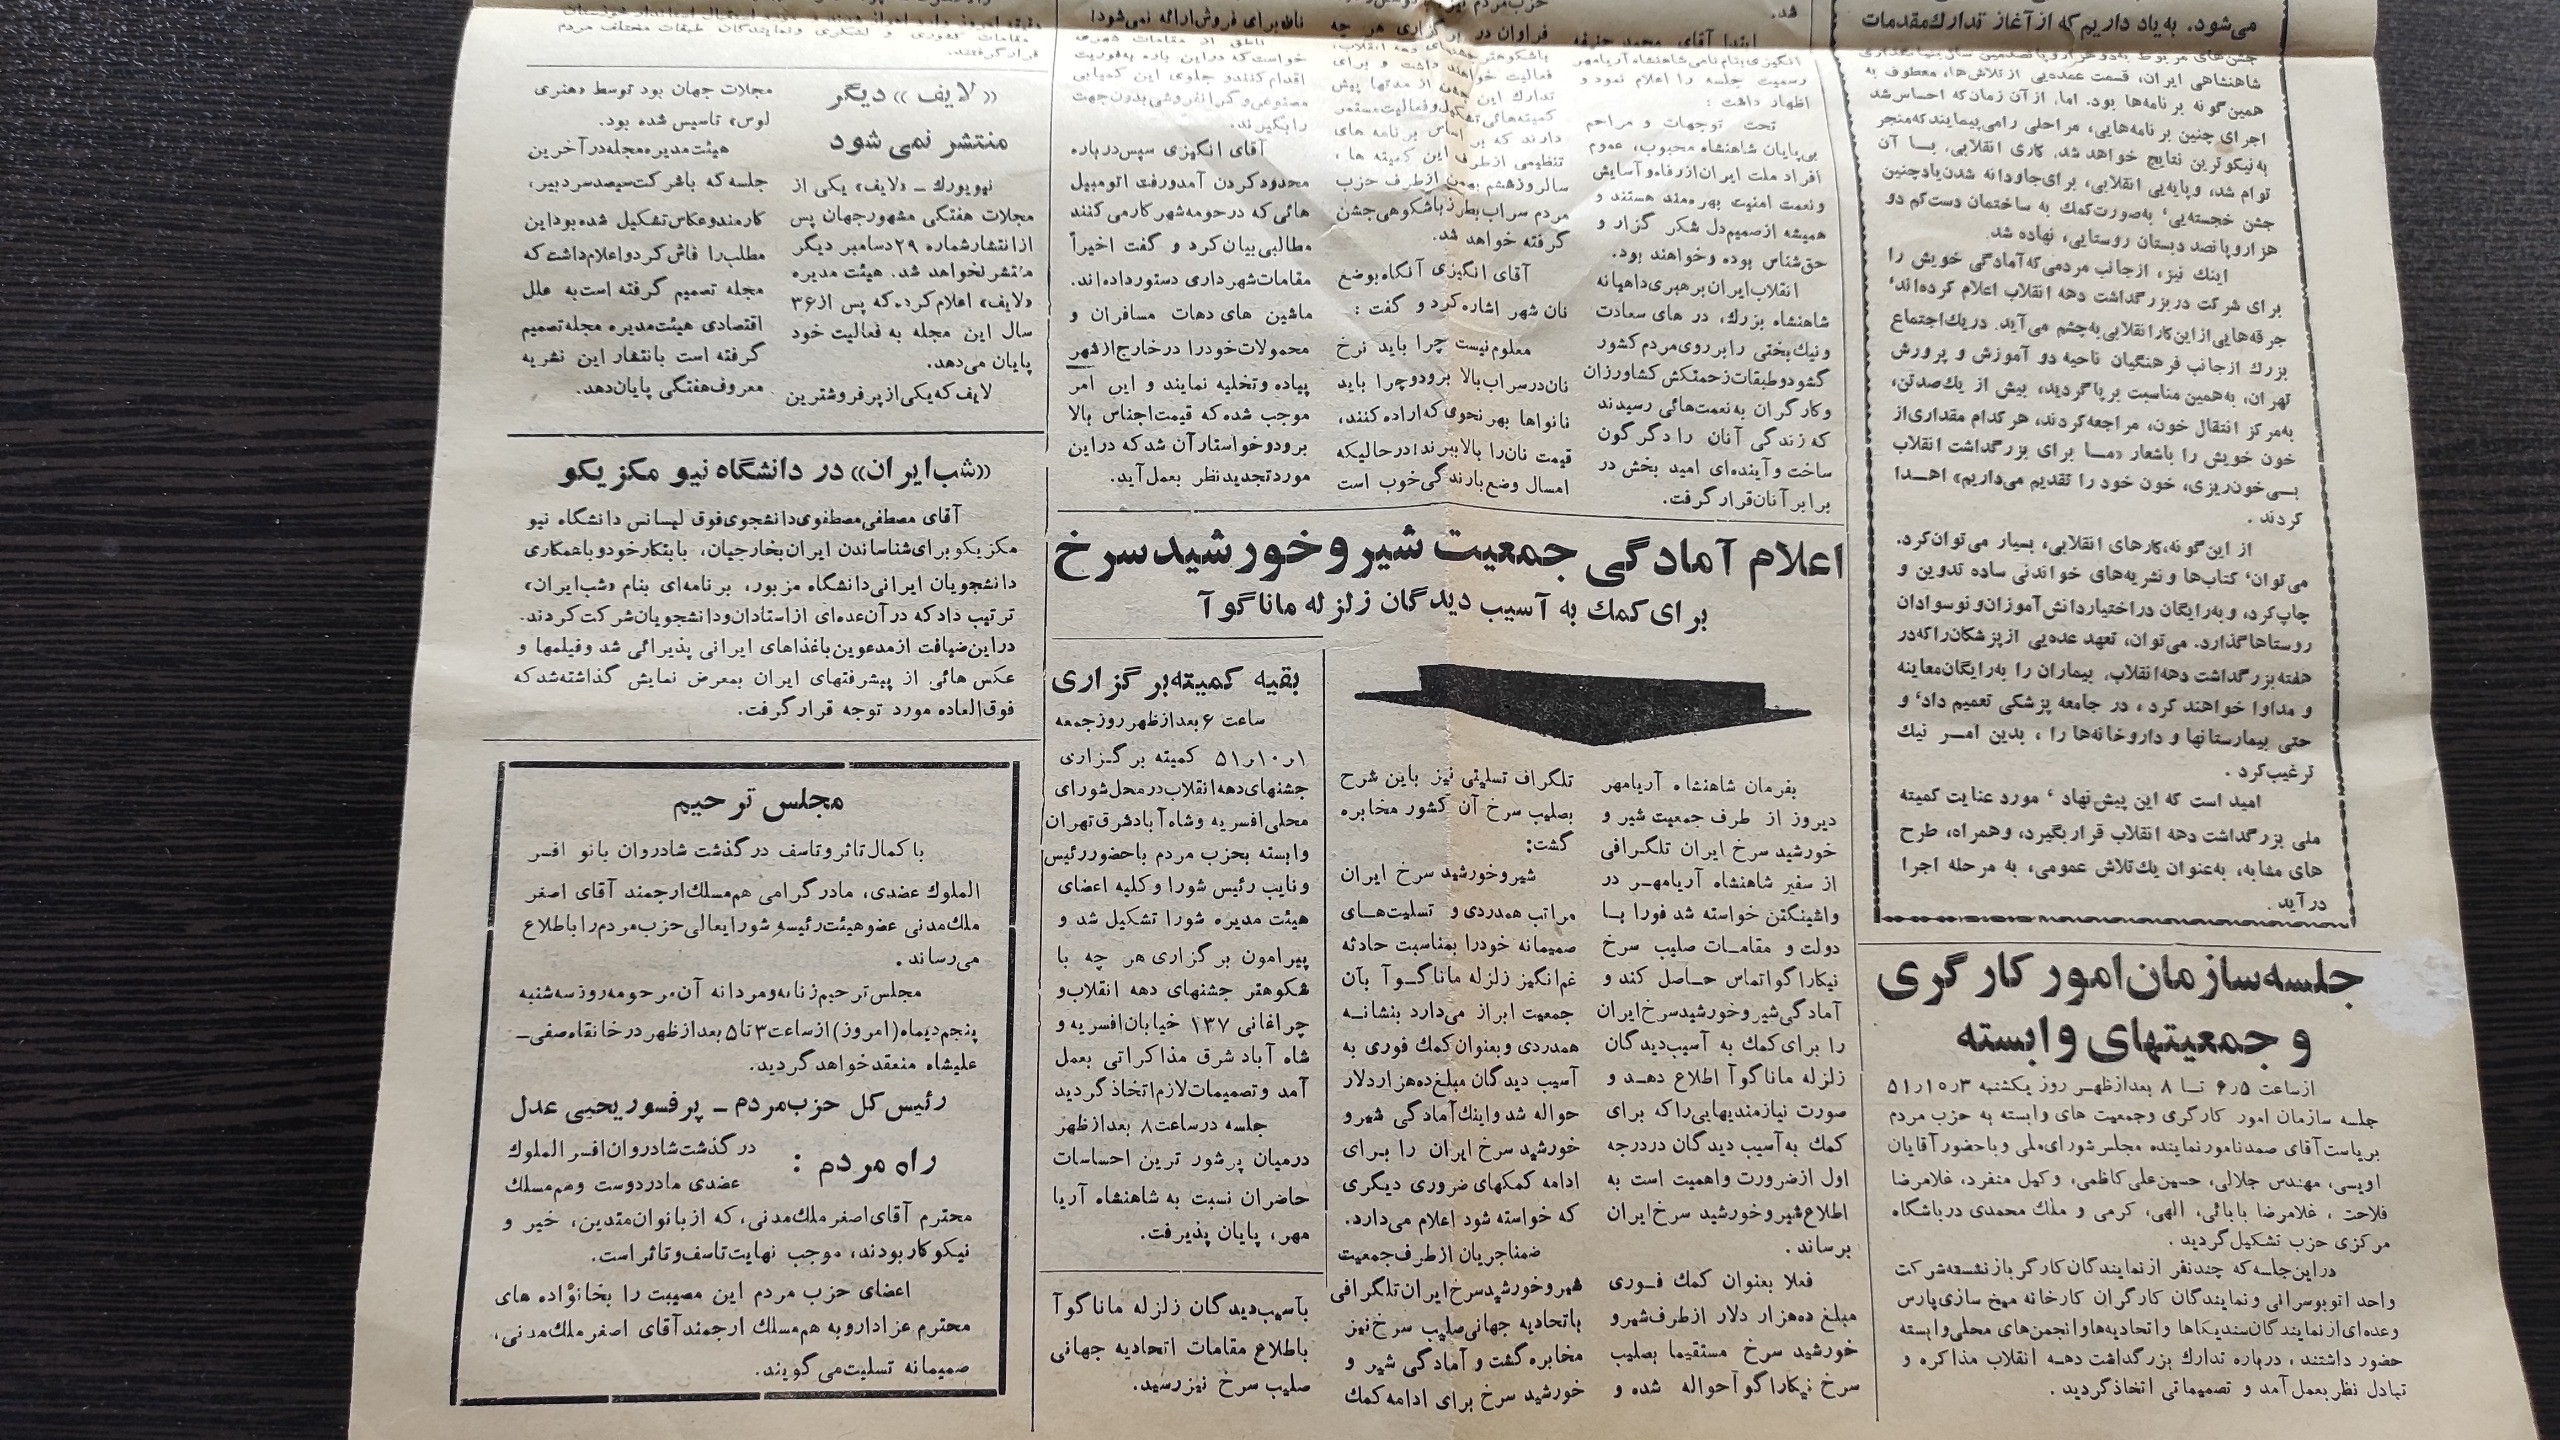 می‌شود. به‌یاد داریم که از آغاز تدارك مقدمات
جشن‌های مربوط به‌دو هزار و پانصدمین سال بنیانگذاری
شاهنشاهی ایران، قسمت عمده‌یی از تلاش‌ها، معطوف به
همین گونه برنامه‌ها بود. اما، از آن زمان که احساس شد
اجرای چنین برنامه‌هایی، مراحلی را می‌پیمایند که منجر
به‌نیکوترین نتایج خواهد شد، کاری انقلابی، بــا آن
توام شد، و پایه‌یی انقلابی، برای جاودانه شدن یاد چنین
جشن خجسته‌یی، به‌صورت کمك به ساختمان دست‌کم دو
هزار و پانصد دبستان روستایی، نهاده شد.
اینك نیز، از جانب مردمی که آمادگی خویش را
برای شرکت در بزرگداشت دهه انقلاب اعلام کرده‌اند،
جرقه‌هایی از این کار انقلابی به‌چشم می‌آید. در یك اجتماع
بزرك از جانب فرهنگیان ناحیه دو آموزش و پرورش
تهران، به‌همین مناسبت برپا گردید، بیش از یك‌صد تن،
به‌مرکز انتقال خون، مراجعه کردند، هر کدام مقداری از
خون خویش را باشعار «مــا برای بزرگداشت انقلاب
بــی خون‌ریزی، خون خود را تقدیم می‌داریم» اهــدا
کردند .
از این گونه، کارهای انقلابی، بسیار می‌توان کرد.
می‌توان، کتاب‌ها و نشریه‌های خواندنی ساده تدوین و
چاپ کرد، و به‌رایگان در اختیار دانش‌آموزان و نوسوادان
روستاها گذارد. می‌توان، تعهد عده‌یی از پزشکان را که در
هفته بزرگداشت دهه انقلاب، بیماران را به‌رایگان معاینه
و مداوا خواهند کرد ، در جامعه پزشکی تعمیم داد، و
حتی بیمارستانها و داروخانه‌ها را ، بدین امــر نیك
ترغیب کرد .
امید است که این پیش‌نهاد ، مورد عنایت کمیته
ملی بزرگداشت دهه انقلاب قرار بگیرد، و همراه، طرح
های مشابه، به‌عنوان یك تلاش عمومی، به مرحله اجرا
در آید .
جلسه سازمان امور کارگری
و جمعیتهای وابسته
از ساعت ۶ر۵ تــا ۸ بعدازظهــر روز یکشنبه ۵۱ر۱۰ر۳
جلسه سازمان امور کارگری و جمعیت های وابسته به حزب مردم
بریاست آقای صمد نامور نماینده مجلس شورای ملی و با حضور آقایان
اویسی، مهندس جلالی، حسین‌علی کاظمی، وکیل منفرد، غلامرضا
فلاحت ، غلامرضا بابائی، الهی، کرمی و ملك محمدی در باشگاه
مرکزی حزب تشکیل گردید .
در این جلسه که چند نفر از نمایندگان کارگر بازنشسته شرکت
واحد اتوبوسرانی و نمایندگان کارگران کارخانه میخ سازی پارس
و عده‌ای از نمایندگان سندیکاها و اتحادیه‌ها و انجمن‌های محلی وابسته
حضور داشتند ، درباره تدارك بزرگداشت دهــه انقلاب مذاکره و
تبادل نظر بعمل آمد و تصمیماتی اتخاذ گردید .
شد.
ابتدا آقای محمد حنیفه
انگیزی بنام نامی شاهنشاه آریامهر
رسمیت جلسه را اعلام نمود و
اظهار داشت :
تحت توجهات و مراحم
بی‌پایان شاهنشاه محبوب، عموم
افراد ملت ایران از رفاه و آسایش
و نعمت امنیت بهره‌مند هستند و
همیشه از صمیم دل شکر گزار و
حق‌شناس بوده و خواهند بود.
انقلاب ایران بر هبری داهیانه
شاهنشاه بزرك، در های سعادت
و نیك بختی را بر روی مردم کشور
گشود و طبقات زحمتکش کشاورزان
و کارگران به نعمت‌هائی رسیدند
که زندگی آنان را دگرگون
ساخت و آینده‌ای امید بخش در
برابر آنان قرار گرفت.
فراوان در برگزاری هر چه
باشکوهتر جشنهای دهه انقلاب،
فعالیت خواهند داشت و برای
تدارك این جشن از مدتها پیش
کمیته‌هائی تشکیل و فعالیت مستمر
دارند که بر اساس برنامه های
تنظیمی از طرف این کمیته ها ،
سالروز هشتم بهمن از طرف حزب
مردم سراب بطرز باشکوهی جشن
گرفته خواهد شد.
آقای انگیزی آنگاه بوضع
نان شهر اشاره کرد و گفت :
معلوم نیست چرا باید نرخ
نان در سراب بالا برود و چرا باید
نانواها بهر نحوی که اراده کنند،
قیمت نان را بالا ببرند! در حالیکه
امسال وضع بارندگی خوب است
نان برای فروش ارائه نمی‌شود!
ناطق از مقامات شهری
خواست که در این باره به‌فوریت
اقدام کنند و جلوی این کمیابی
مصنوعی و گرانفروشی بدون جهت
را بگیرند.
آقای انگیزی سپس درباره
محدود کردن آمدورفت اتومبیل
هائی که در حومه شهر کار می کنند
مطالبی بیان کرد و گفت اخیراً
مقامات شهرداری دستور داده‌اند.
ماشین های دهات مسافران و
محمولات خود را در خارج از شهر
پیاده و تخلیه نمایند و این امر
موجب شده که قیمت اجناس بالا
برود و خواستار آن شد که در این
مورد تجدید نظر بعمل آید.
اعلام آمادگی جمعیت شیر و خورشید سرخ
برای کمك به آسیب دیدگان زلزله ماناگوآ
بفرمان شاهنشاه آریامهر
دیروز از طرف جمعیت شیر و
خورشید سرخ ایران تلگــرافی
از سفیر شاهنشاه آریامهــر در
واشینگتن خواسته شد فورا بــا
دولت و مقامــات صلیب سرخ
نیکاراگوا تماس حــاصل کند و
آمادگی شیر و خورشید سرخ ایران
را برای کمك به آسیب دیدگان
زلزله ماناگوآ اطلاع دهــد و
صورت نیازمندیهایی را که برای
کمك به آسیب دیدگان در درجه
اول از ضرورت و اهمیت است به
اطلاع شیر و خورشید سرخ ایران
برساند .
فعلا بعنوان کمك فــوری
مبلغ ده هزار دلار از طرف شیر و
خورشید سرخ مستقیما بصلیب
سرخ نیکاراگوآ حواله شده و
تلگراف تسلیتی نیز باین شرح
بصلیب سرخ آن کشور مخابره
گشت:
شیر و خورشید سرخ ایران
مراتب همدردی و تسلیت‌هــای
صمیمانه خود را بمناسبت حادثه
غم‌انگیز زلزله ماناگــوآ بآن
جمعیت ابراز می‌دارد بنشانــه
همدردی و بعنوان کمك فوری به
آسیب دیدگان مبلغ ده هزار دلار
حواله شد و اینك آمادگی شیر و
خورشید سرخ ایران را بــرای
ادامه کمکهای ضروری دیگری
که خواسته شود اعلام می‌دارد.
ضمنا جریان از طرف جمعیت
شیر و خورشید سرخ ایران تلگرافی
باتحادیه جهانی صلیب سرخ نیز
مخابره گشت و آمادگی شیر و
خورشید سرخ برای ادامه کمك
بآسیب دیدگان زلزله ماناگوآ
باطلاع مقامات اتحادیه جهانی
صلیب سرخ نیز رسید.
بقیه کمیته برگزاری
ساعت ۶ بعدازظهر روز جمعه
۵۱ر۱۰ر۱ کمیته برگزاری
جشنهای دهه انقلاب در محل شورای
محلی افسریه و شاه آباد شرق تهران
وابسته بحزب مردم با حضور رئیس
و نایب رئیس شورا و کلیه اعضای
هیئت مدیره شورا تشکیل شد و
پیرامون برگزاری هر چه با
شکوهتر جشنهای دهه انقلاب و
چراغانی ۱۳۷ خیابان افسریه و
شاه آباد شرق مذاکراتی بعمل
آمد و تصمیمات لازم اتخاذ گردید
جلسه در ساعت ۸ بعدازظهر
درمیان پرشور ترین احساسات
حاضران نسبت به شاهنشاه آریا
مهر، پایان پذیرفت.
مقامات کشوری و لشکری و نمایندگان طبقات مختلف مردم
قرار گرفتند.
«لایف» دیگر
منتشر نمی شود
نیویورك ـ «لایف» یکی از
مجلات هفتگی مشهور جهان پس
از انتشار شماره ۲۹ دسامبر دیگر
منتشر نخواهد شد. هیئت مدیره
«لایف» اعلام کرده که پس از ۳۶
سال این مجله به فعالیت خود
پایان می‌دهد.
لایف که یکی از پر فروشترین
مجلات جهان بود توسط «هنری
لوس» تاسیس شده بود.
هیئت مدیره مجله در آخرین
جلسه که با شرکت سیصد سردبیر،
کارمند و عکاس تشکیل شده بود این
مطلب را فاش کرد و اعلام داشت که
مجله تصمیم گرفته است به علل
اقتصادی هیئت مدیره مجله تصمیم
گرفته است بانتشار این نشریه
معروف هفتگی پایان دهد.
«شب ایران» در دانشگاه نیو مکزیکو
آقای مصطفی مصطفوی دانشجوی فوق لیسانس دانشگاه نیو
مکزیکو برای شناساندن ایران بخارجیان، بابتکار خود و با همکاری
دانشجویان ایرانی دانشگاه مزبور، برنامه‌ای بنام «شب ایران»
ترتیب داد که در آن عده‌ای از استادان و دانشجویان شرکت کردند.
در این ضیافت از مدعوین با غذاهای ایرانی پذیرائی شد و فیلمها و
عکس هائی از پیشرفتهای ایران بمعرض نمایش گذاشته شد که
فوق‌العاده مورد توجه قرار گرفت.
مجلس ترحیم
با کمال تاثر و تاسف درگذشت شادروان بانو افسر
الملوك عضدی، مادر گرامی هم‌مسلك ارجمند آقای اصغر
ملك‌مدنی عضو هیئت رئیسه شورایعالی حزب مردم را باطلاع
می‌رساند .
مجلس ترحیم زنانه و مردانه آن مرحومه روز سه شنبه
پنجم دیماه (امروز) از ساعت ۳ تا ۵ بعدازظهر در خانقاه صفی‌ـ
علیشاه منعقد خواهد گردید.
رئیس کل حزب مردم ـ پرفسور یحیی عدل
راه مردم :
در گذشت شادروان افسر الملوك
عضدی مادر دوست و هم‌مسلك
محترم آقای اصغر ملك‌مدنی، که از بانوان متدین، خیر و
نیکوکار بودند، موجب نهایت تاسف و تاثر است.
اعضای حزب مردم این مصیبت را بخانواده های
محترم عزادار و به هم‌مسلك ارجمند آقای اصغر ملك‌مدنی،
صمیمانه تسلیت می گویند.